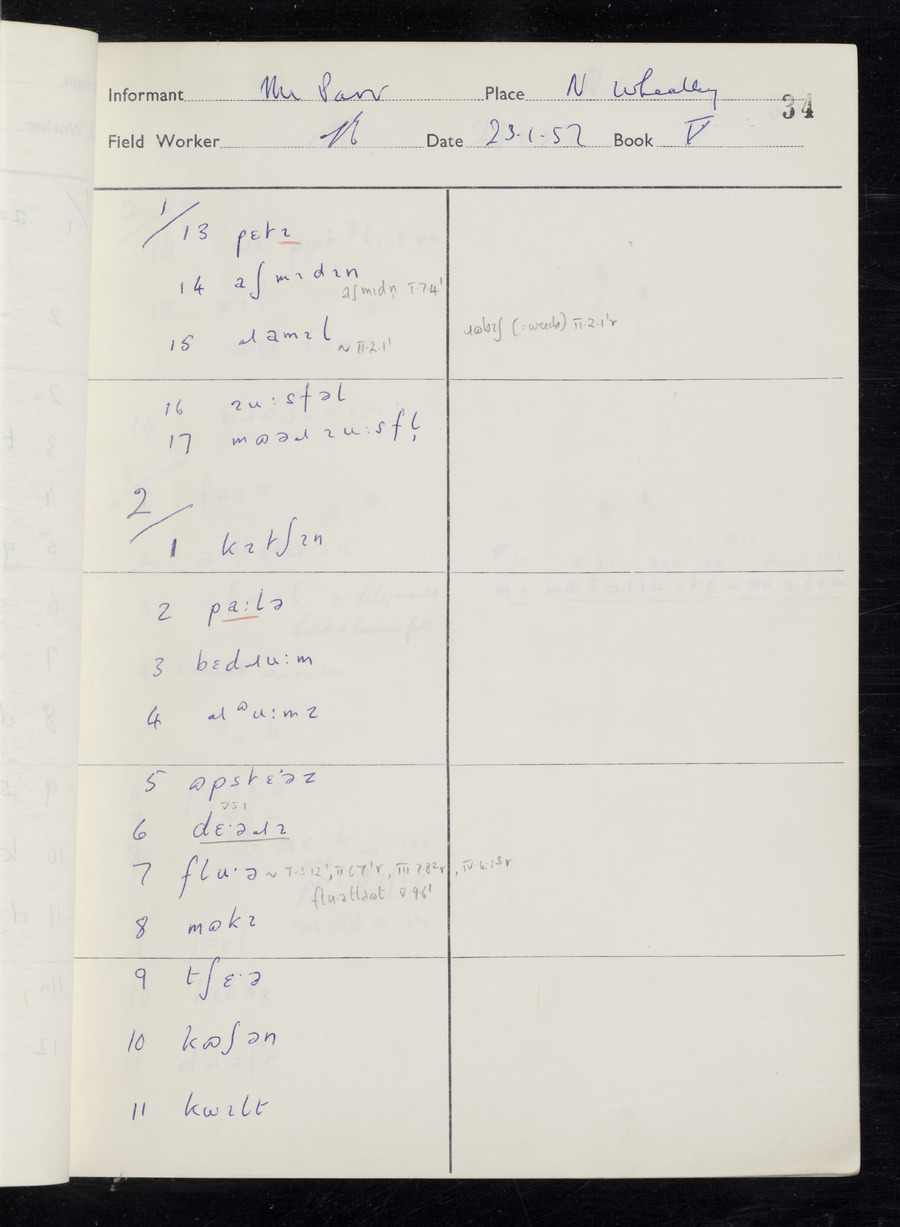 Informant Mr Parr Place N Wheatley
34
Field Worker Date 23.1.52 Book V
1/13 pɛtɪ
14 aʃmɪdɪn
aʃmɪdn̩ I.7.4¹
15 ɹamɪl ~ II.2.1¹
ɹɷbɪʃ (:weeds) II.2.1¹r
16 ɪu:sfəl
17 mɷəɹ ɪu:sfl̩
2/
1 kɪtʃɪn
2 pa:lə
3 bɛdɹu:m
4 ɹᶷu:mz
5 ɷpstɛ·əz
V.5.1
6 dɛ·əɹɪ
7 flu·ə ~ I.3.12¹, II.6.7¹r, III.7.8²r, IV.4.1³r
V.9.6¹
8 mɷkɪ
9 tʃɛ·ə
10 kɷʃən
11 kwɪlt